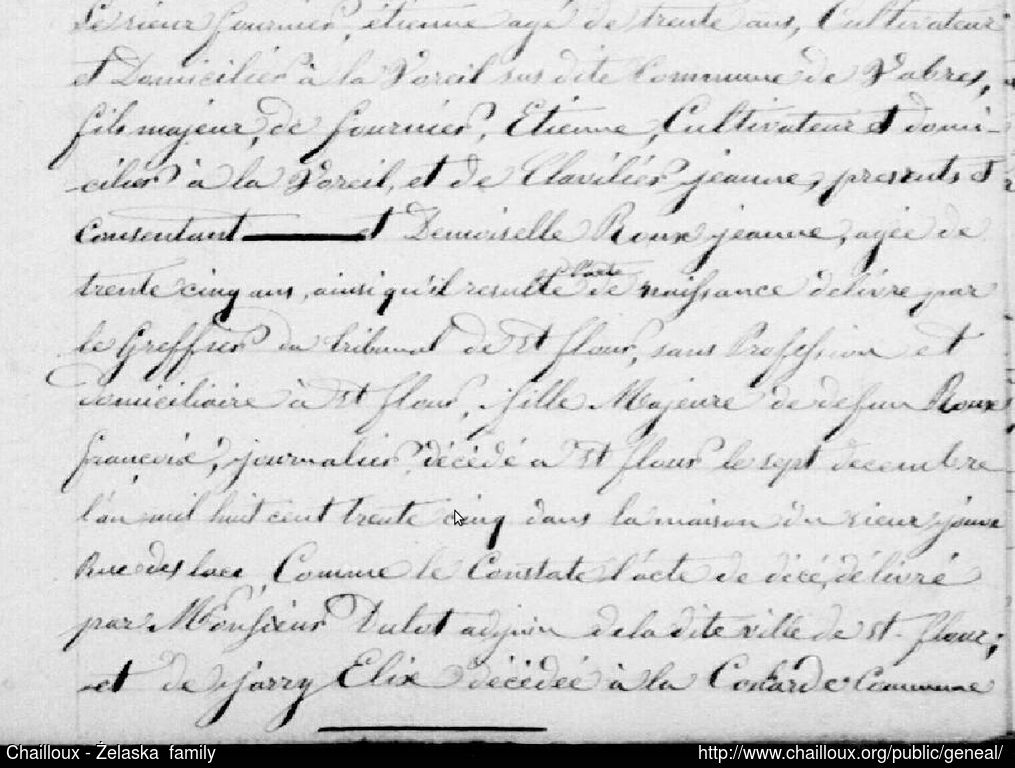 Le sieur fournier, étienne agé de trente ans, Cultivateur
et Domicilier à la Voreil sus dite Commune de Vabres,
fils majeur, de fournier, Etienne, Cultivateur et domi-
-cilier à la Voreil, et de Clavilier jeanne, presents et
Consentant et Demoiselle Roux jeanne, agée de
trente cinq ans, ainsi qu'il resulte de l'acte naissance delivre par
le Greffier du tribunal de St flour, sans Profession et
domiciliaire à St flour, fille Majeure de defun Roux
francois, journalier, décédé a St flour le sept decembre
l'an mil huit cent trente cinq dans la maison du sieur
Rue des lacs, Comme le Constate l'acte de décé, délivré
par Monsieur Dulot adjoin de la dite ville de St. flour;
et de jarry Elix décédée à la Commune
Chailloux - Żelaska family
http://www.chailloux.org/public/geneal/